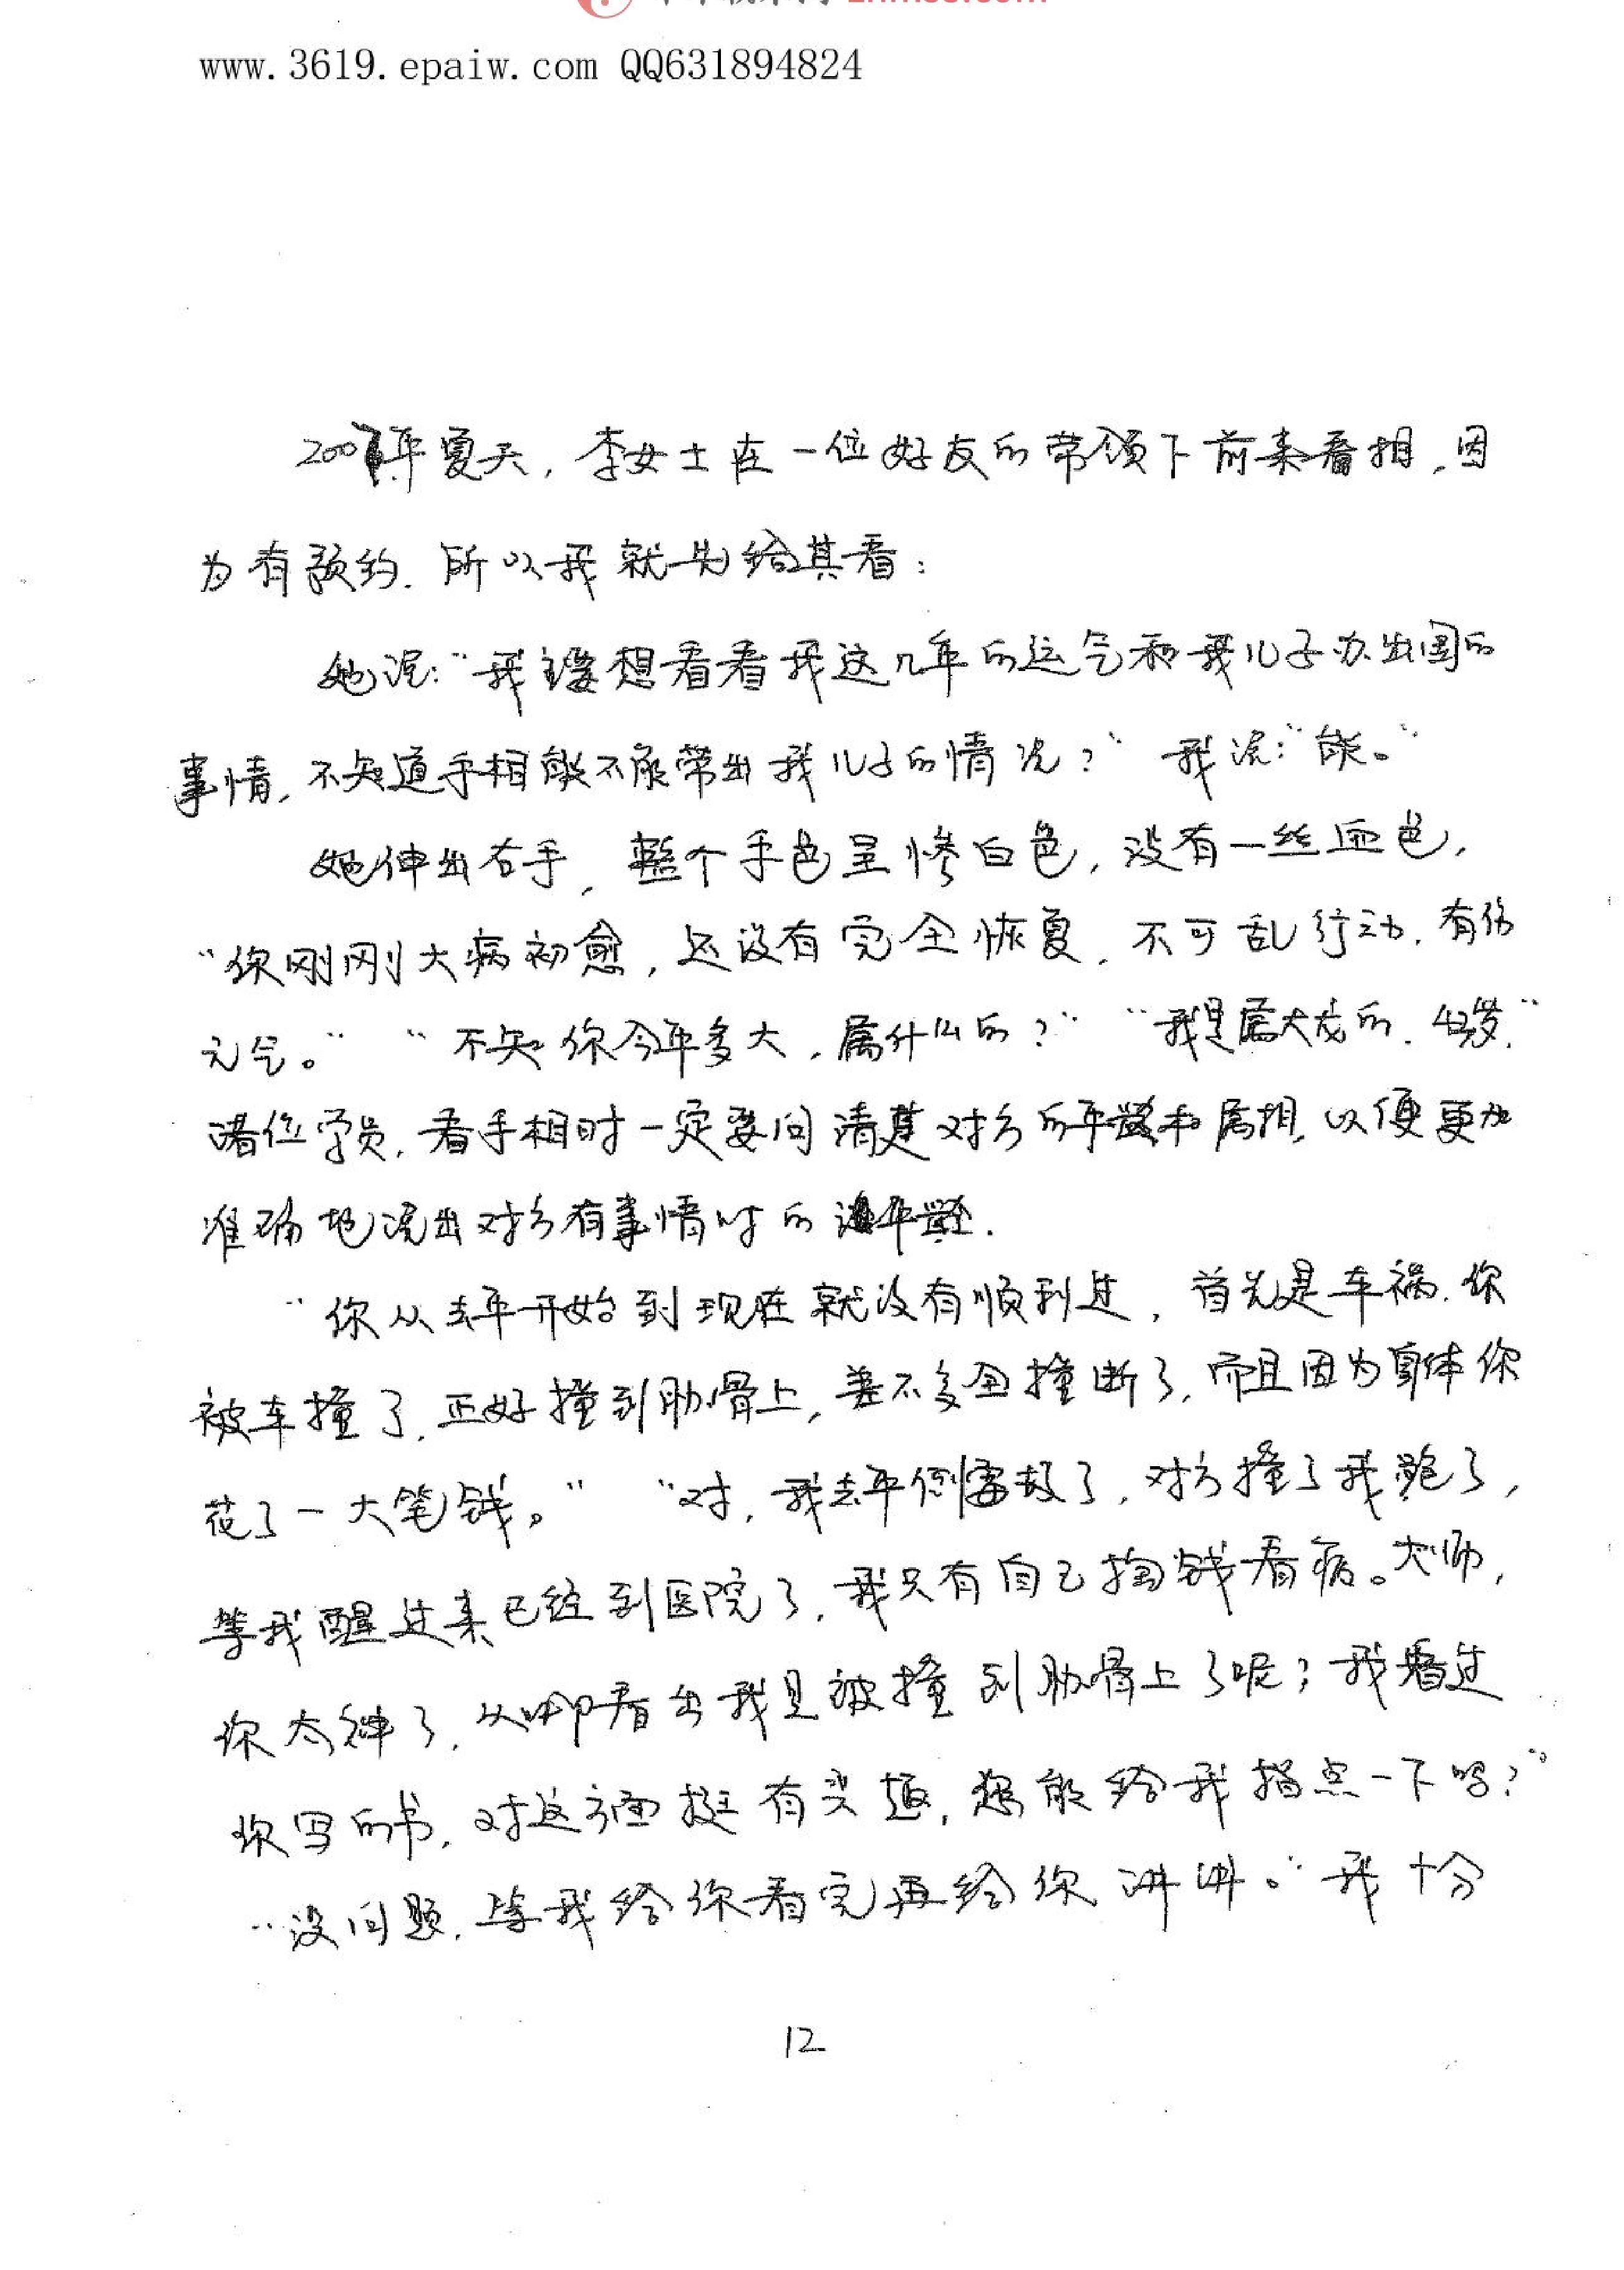 www.3619.epaiw.com QQ631894824
200年夏天，李女士在一位好友的带领下前来看相，因
为有预约．所以我就先给其看：
她说：“我主要想看看我这几年的运气和我儿子办出国的
事情，不知道手相能不能带出我儿子的情况？”我说：“能。”
她伸出右手，整个手色呈惨白色，没有一丝血色，
“你刚刚大病初愈，还没有完全恢复，不可乱行动，有伤
元气。”“不知你今年多大，属什么的？”“我是属大龙的．43岁．”
诸位学员，看手相时一定要问清楚对方的年龄和属相，以便更加
准确地说出对方有事情时的年龄．
“你从去年开始到现在就没有顺利过，首先是车祸．你
被车撞了，正好撞到肋骨上，差不多全撞断了，而且因为身体你
花了一大笔钱。”“对，我去年倒霉极了，对方撞了我跑了，
等我醒过来已经到医院了，我只有自己掏钱看病。大师，
你太神了，从哪看出我是被撞到肋骨上了呢？我看过
你写的书，对这方面挺有兴趣，您能给我指点一下吗？”
“没问题，等我给你看完再给你讲讲。”我十分
12